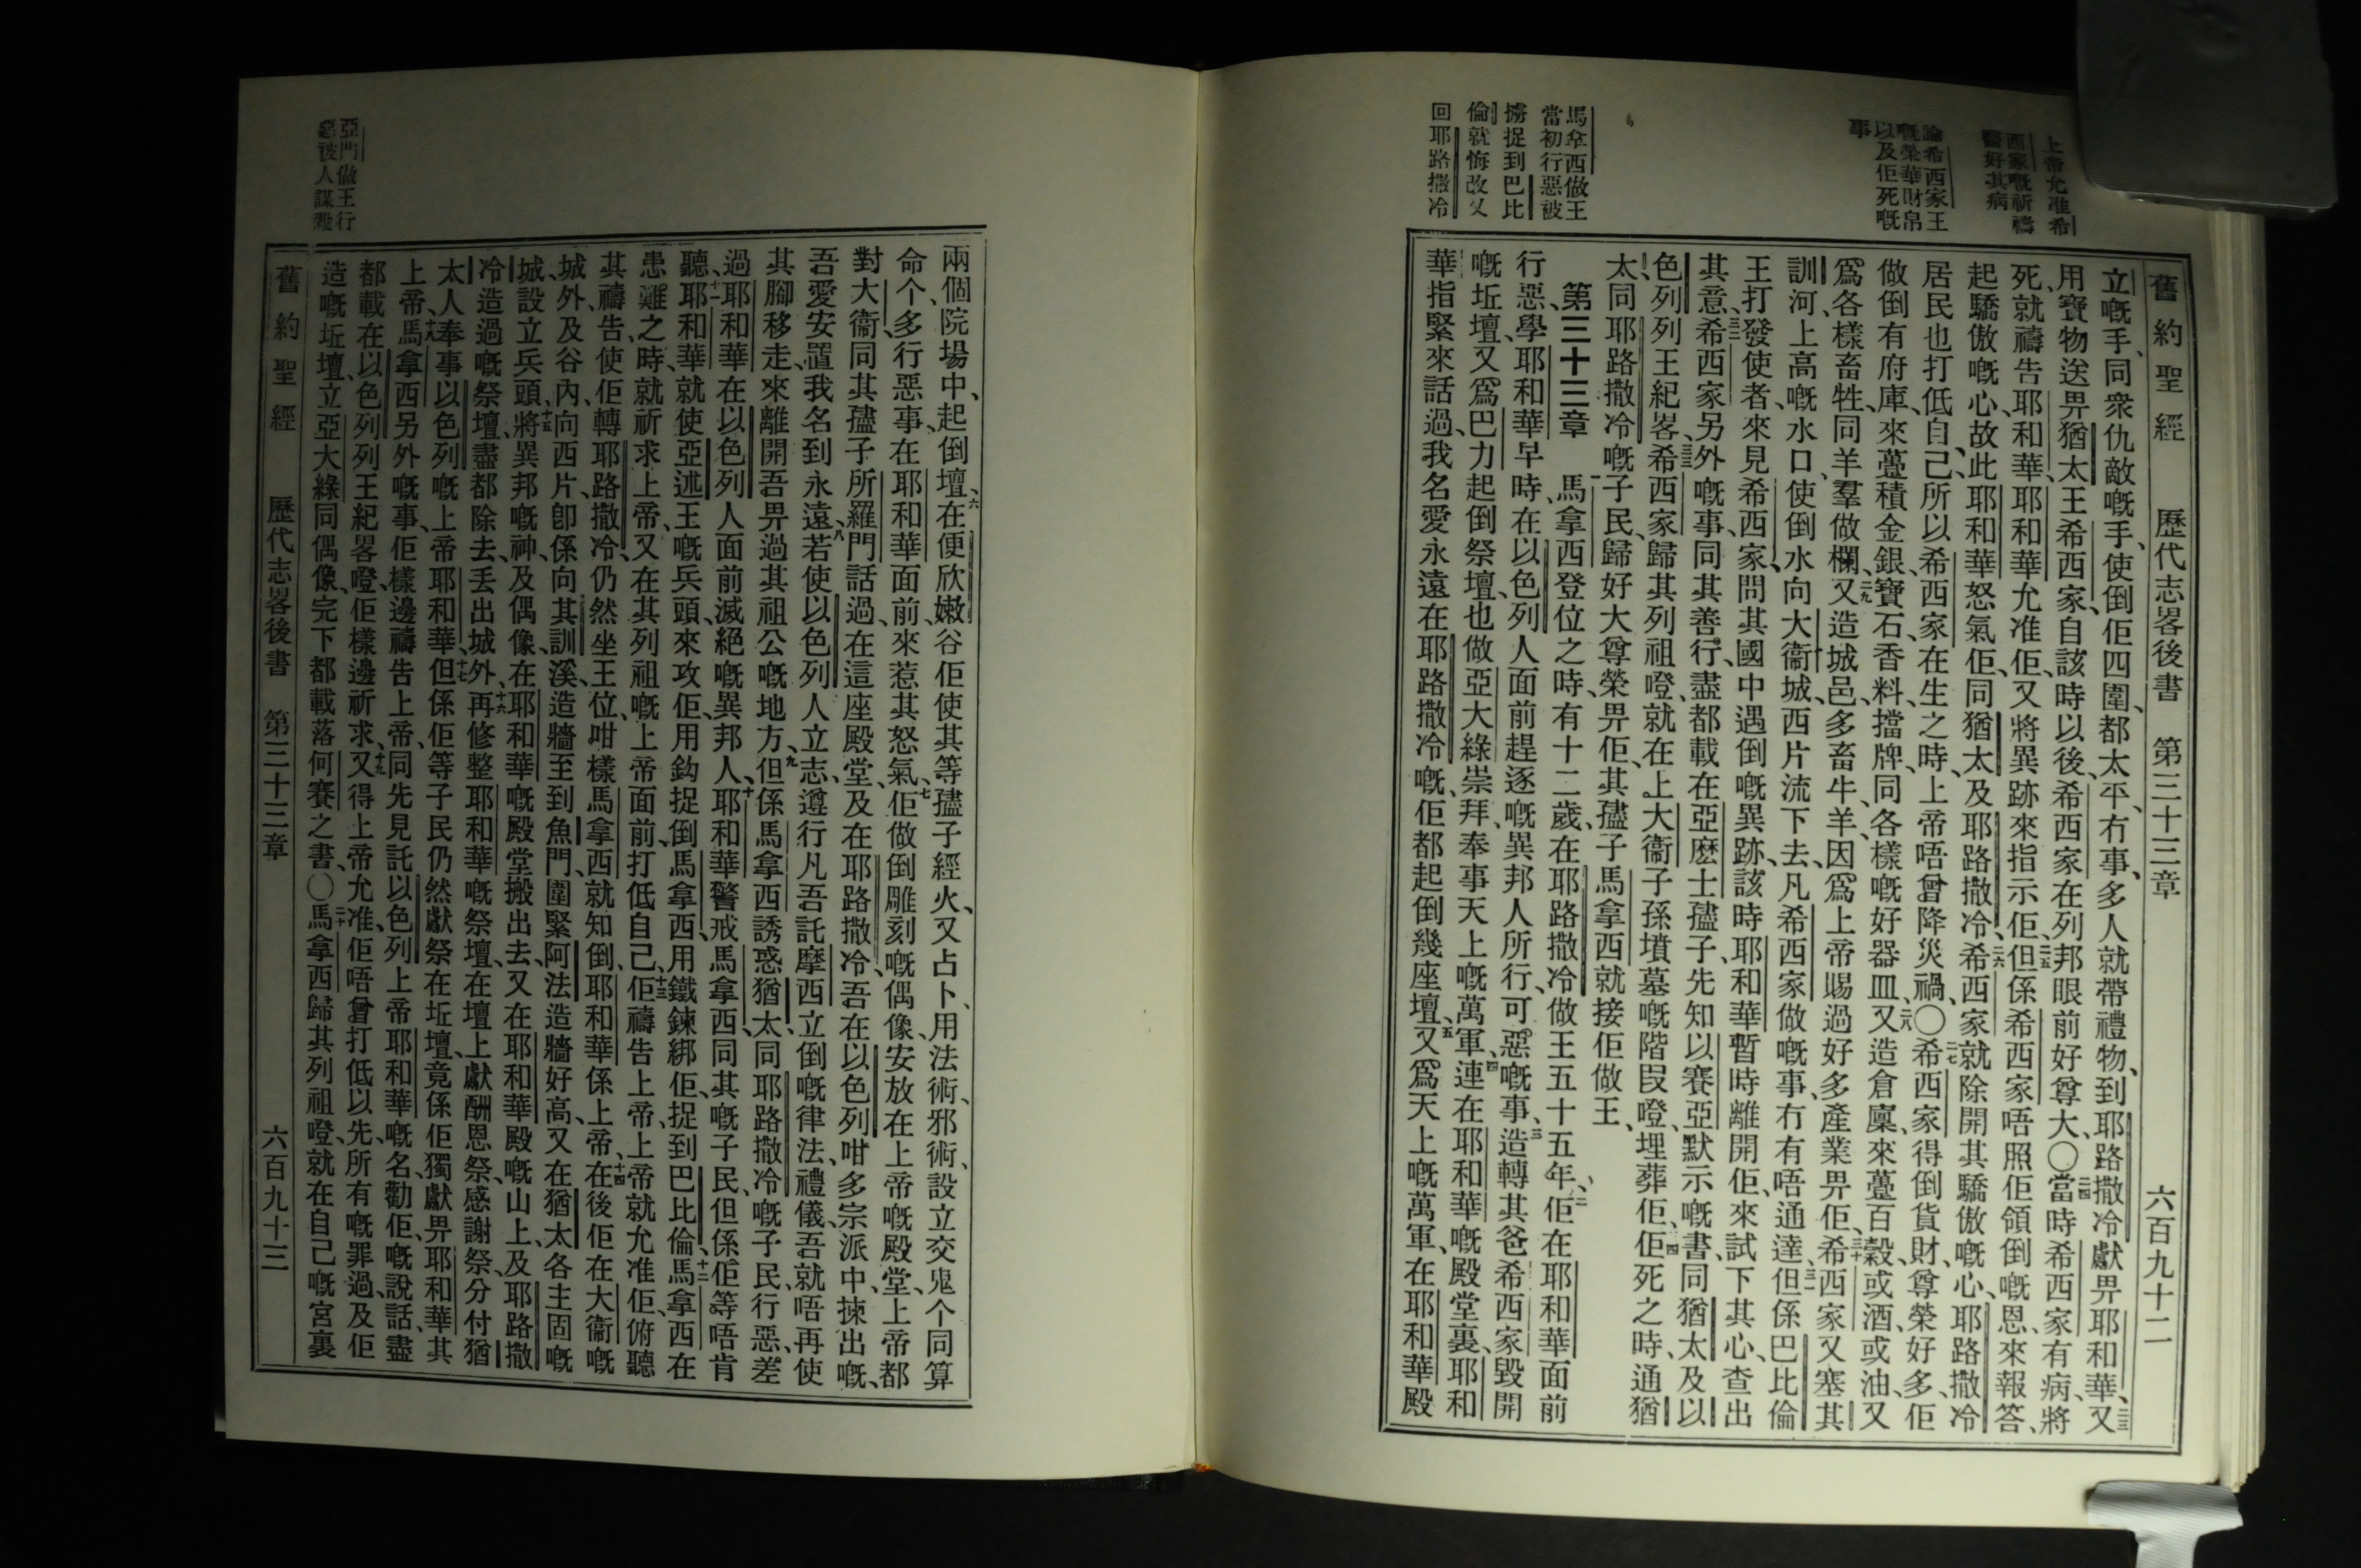 舊約聖經 歷代志畧後書 第三十三章 六百九十二
上帝允准希
西家嘅祈禱
醫好其病
論希西家王
嘅榮華財帛
以及佢死嘅
事
馬拿西做王
當初行惡被
擄捉到巴比
倫就悔改又
回耶路撒冷
立嘅手、同衆仇敵嘅手、使倒佢四圍、都太平、冇事、多人就帶禮物、到耶路撒冷獻畀耶和華、又
用寶物送畀猶太王希西家、自該時以後、希西家在列邦眼前好尊大、〇當時希西家有病、將
死、就禱告耶和華、耶和華允准佢、又將異跡來指示佢、但係希西家唔照佢領倒嘅恩、來報答、
起驕傲嘅心、故此耶和華怒氣佢、同猶太及耶路撒冷、希西家就除開其驕傲嘅心、耶路撒冷
居民也打低自己、所以希西家在生之時、上帝唔曾降災禍、〇希西家得倒貨財、尊榮好多、佢
做倒有府庫、來躉積金銀、寶石、香料、擋牌、同各樣嘅好器皿、又造倉廩、來躉百穀、或酒、或油、又
爲各樣畜牲、同羊羣做欄、又造城邑、多畜牛、羊、因爲上帝賜過好多產業畀佢、希西家又塞其
訓河、上高嘅水口、使倒水向大衞城、西片流下去、凡希西家做嘅事、冇有唔通達、但係巴比倫
王打發使者、來見希西家、問其國中遇倒嘅異跡、該時耶和華暫時離開佢、來試下其心、查出
其意、希西家另外嘅事、同其善行、盡都載在亞麽士孻子、先知以賽亞默示嘅書、同猶太及以
色列列王紀畧、希西家歸其列祖噔、就在上大衞子孫墳墓嘅階段噔、埋葬佢、佢死之時、通猶
太、同耶路撒冷嘅子民、歸好大尊榮畀佢、其孻子馬拿西就接佢做王、
第三十三章 馬拿西登位之時、有十二歲、在耶路撒冷做王五十五年、佢在耶和華面前
行惡、學耶和華早時、在以色列人面前趕逐嘅異邦人所行、可惡嘅事、造轉其爸希西家、毀開
嘅坵壇、又爲巴力起倒祭壇、也做亞大綠、崇拜、奉事天上嘅萬軍、連在耶和華嘅殿堂裏、耶和
華指緊來話過、我名愛永遠在耶路撒冷嘅、佢都起倒幾座壇、又爲天上嘅萬軍、在耶和華殿
兩個院場中、起倒壇、在便欣嫩谷佢使其等孻子經火、又占卜、用法術、邪術、設立交鬼个同算
命个、多行惡事、在耶和華面前、來惹其怒氣、佢做倒雕刻嘅偶像、安放在上帝嘅殿堂、上帝都
對大衞同其孻子所羅門話過、在這座殿堂、及在耶路撒冷、吾在以色列咁多宗派中、揀出嘅、
吾愛安置我名到永遠、若使以色列人立志、遵行凡吾託摩西立倒嘅律法、禮儀、吾就唔再使
其腳移走、來離開吾畀過其祖公嘅地方、但係馬拿西誘惑猶太、同耶路撒冷嘅子民、行惡、差
過耶和華在以色列人面前滅絕嘅異邦人、耶和華警戒馬拿西、同其嘅子民、但係佢等唔肯
聽、耶和華就使亞述王嘅兵頭、來攻佢、用鈎捉倒馬拿西、用鐵鍊綁佢、捉到巴比倫、馬拿西在
患難之時、就祈求上帝、又在其列祖嘅上帝面前、打低自己、佢禱告上帝、上帝就允准佢、俯聽
其禱告、使佢轉耶路撒冷、仍然坐王位、咁樣馬拿西就知倒、耶和華係上帝、在後佢在大衞嘅
城外、及谷內、向西片、卽係向其訓溪、造牆至到魚門、圍緊阿法、造牆好高、又在猶太各主固嘅
城、設立兵頭、將異邦嘅神、及偶像、在耶和華嘅殿堂搬出去、又在耶和華殿嘅山上、及耶路撒
冷造過嘅祭壇、盡都除去、丢出城外、再修整耶和華嘅祭壇、在壇上獻酬恩祭、感謝祭、分付猶
太人奉事以色列嘅上帝耶和華、但係佢等子民仍然獻祭在坵壇、竟係佢獨獻畀耶和華其
上帝、馬拿西另外嘅事、佢樣邊禱告上帝、同先見託以色列上帝耶和華嘅名、勸佢嘅說話、盡
都載在以色列列王紀畧噔、佢樣邊祈求、又得上帝允准、佢唔曾打低以先、所有嘅罪過、及佢
造嘅坵壇、立亞大綠、同偶像、完下都載落何賽之書、〇馬拿西歸其列祖噔、就在自己嘅宮裏
亞門做王行
惡被人謀殺
舊約聖經 歷代志畧後書 第三十三章 六百九十三